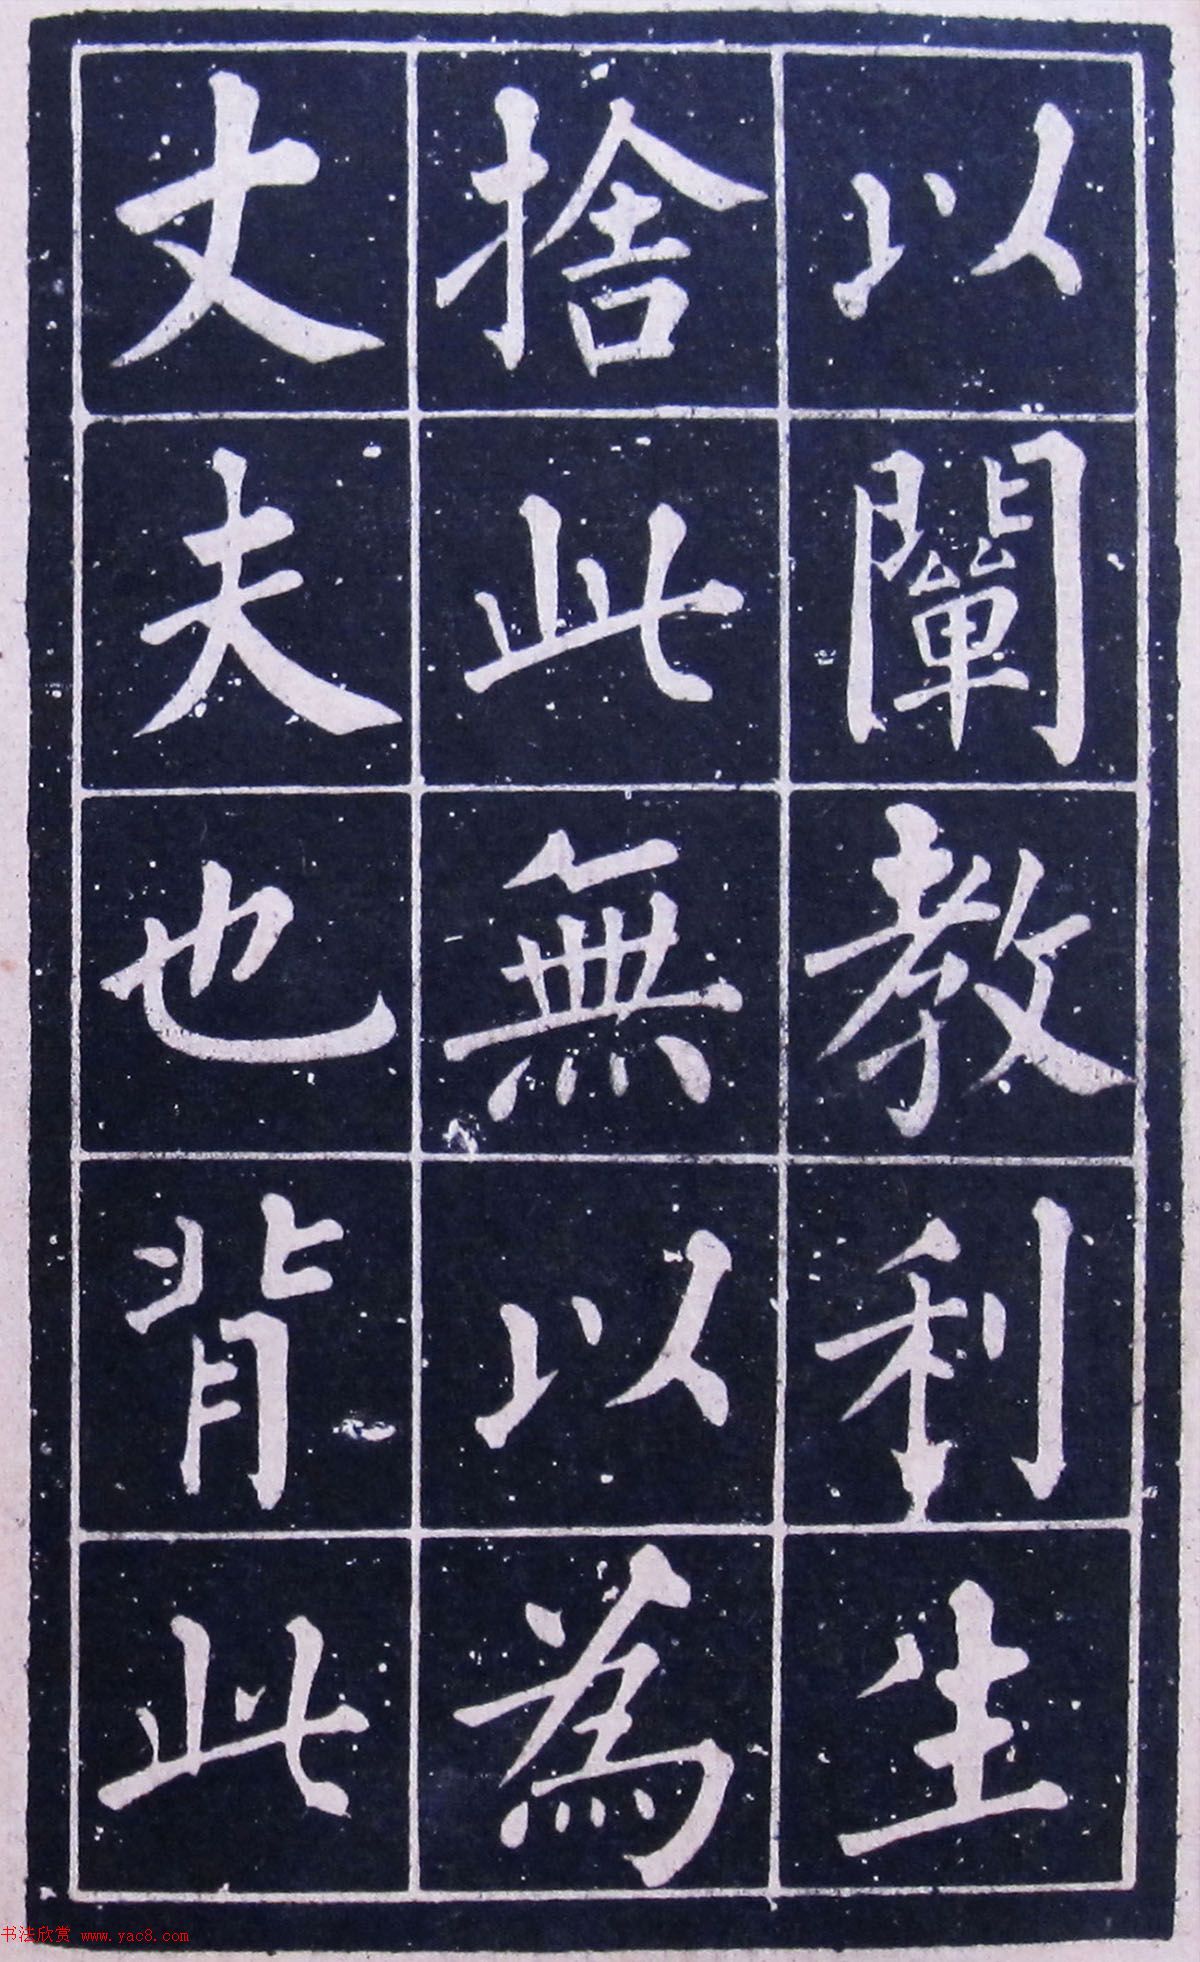 以闡教利生
捨此無以為
丈夫也背此
书法欣赏 www.yac8.com